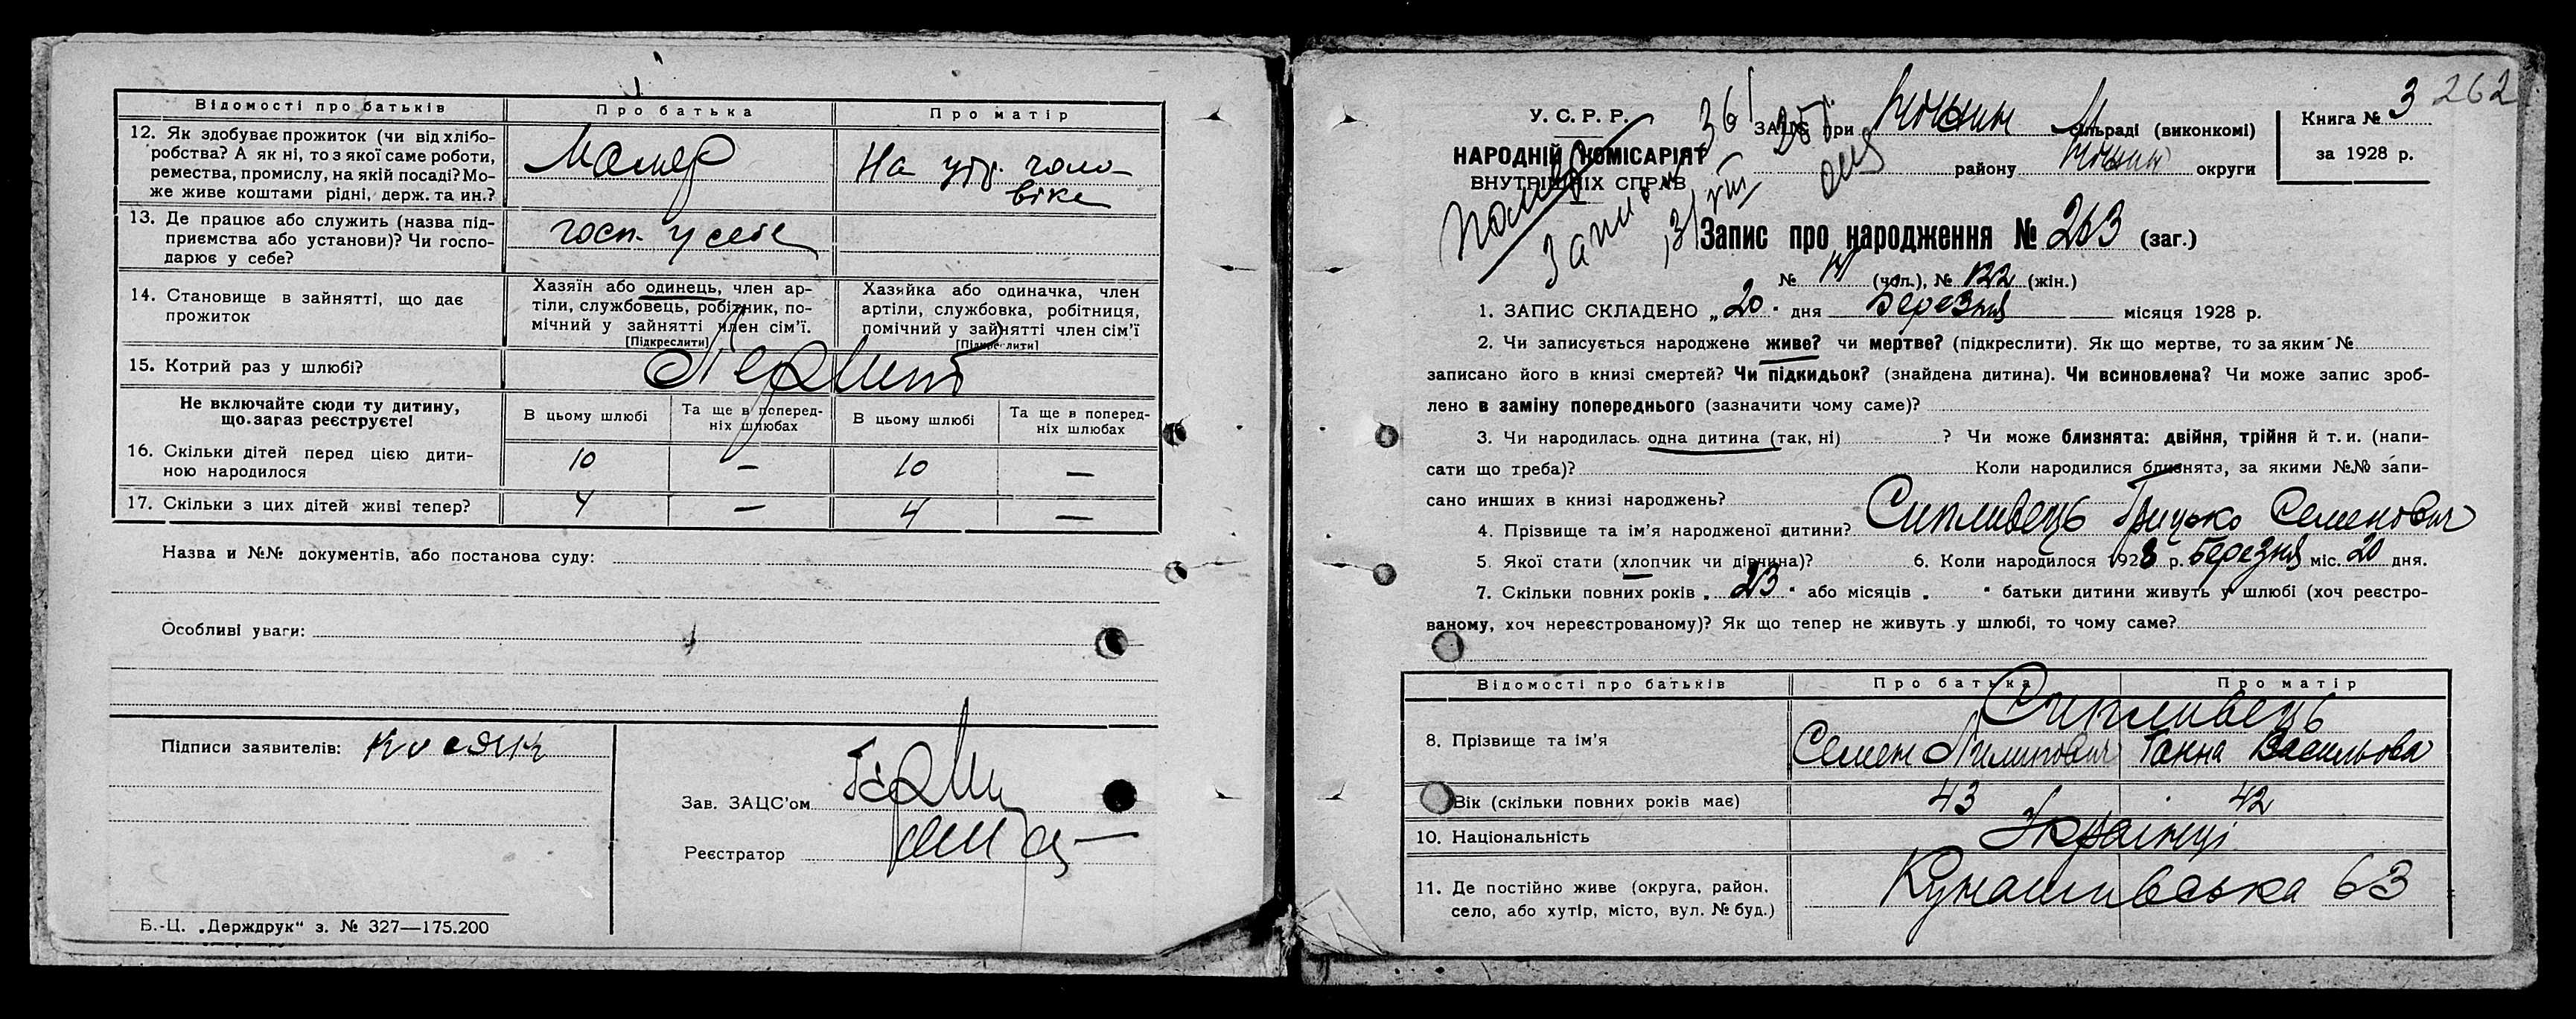 Відомості про батьків
Про батька
Про матір
12. Як здобуває прожиток (чи від хлібо-
робства? А як ні, то з якої саме роботи,
ремества, промислу, на якій посаді? Мо-
же живе коштами рідні, держ. та ин.?
Маляр
На утр. чоло-
віка
13. Де працює або служить (назва під-
приємства або установи)? Чи госпо-
дарює у себе?
госп. у себе
14. Становище в зайнятті, що дає
прожиток
Хазяїн або одинець, член ар-
тіли, службовець, робітник, по-
мічний у зайнятті член сім'ї.
[Підкреслити]
Хазяйка або одиначка, член
артіли, службовка, робітниця,
помічний у зайнятті член сім'ї
[Підкреслити]
15. Котрий раз у шлюбі?
Перший
Не включайте сюди ту дитину,
що.зараз реєструєте!
В цьому шлюбі
Та ще в поперед-
ніх шлюбах
В цьому шлюбі
Та ще в поперед-
ніх шлюбах
16. Скільки дітей перед цією дити-
ною народилося
10 — 10 —
17. Скільки з цих дітей живі тепер?
4 — 4 —
Назва и №№ документів, або постанова суду:
Особливі уваги:
Підписи заявителів:
Зав. ЗАЦС'ом
Реєстратор
Б.-Ц. „Держдрук“ з. № 327—175.200
262
У. С. Р. Р.
НАРОДНІЙ КОМІСАРІЯТ
ВНУТРІШНІХ СПРАВ
ЗАЦС при Ніжин сільраді (виконкомі)
району Ніжин округи
Книга № 3
за 1928 р.
Запис про народження № 263 (заг.)
№ (чол.), № 122 (жін.)
1. ЗАПИС СКЛАДЕНО „20" дня Березня місяця 1928 р.
2. Чи записується народжене живе? чи мертве? (підкреслити). Як що мертве, то за яким №
записано його в книзі смертей? Чи підкидьок? (знайдена дитина). Чи всиновлена? Чи може запис зроб-
лено в заміну попереднього (зазначити чому саме)?
3. Чи народилась одна дитина (так, ні) ? Чи може близнята: двійня, трійня й т. и. (напи-
сати що треба)? Коли народилися близнята, за якими №№ запи-
сано инших в книзі народжень?
4. Прізвище та ім'я народженої дитини? Сипливець Грицько Семенович
5. Якої стати (хлопчик чи дівчина)? 6. Коли народилося 1928 р. березня міс. 20 дня.
7. Скільки повних років „23" або місяців „ " батьки дитини живуть у шлюбі (хоч реєстро-
ваному, хоч нереєстрованому)? Як що тепер не живуть у шлюбі, то чому саме?
Відомості про батьків
Про батька
Про матір
8. Прізвище та ім'я
Сипливець
Семен Пилипович
Ганна Васильовa
Вік (скільки повних років має)
43
42
10. Національність
Українці
11. Де постійно живе (округа, район,
село, або хутір, місто, вул. № буд.)
Кунашивська 63